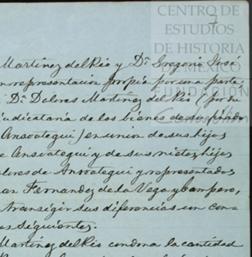 CENTRO DE
ESTUDIOS
DE HISTORIA
DE MÉXICO
FUNDACIÓN
Martinez del Rio y Dn Gregorio José
en representacion propia por una parte,
Da Dolores Martinez del Rio (por su
judicataria de los bienes de su finado
Ansoategui) en union de sus hijos
de Ansoategui y de sus nietos, hijos
Dolores de Ansoategui y representados
Fernandez de la Vega y Campero,
transigir sus diferencias en con
es siguientes:
Martinez del Rio condona la cantidad